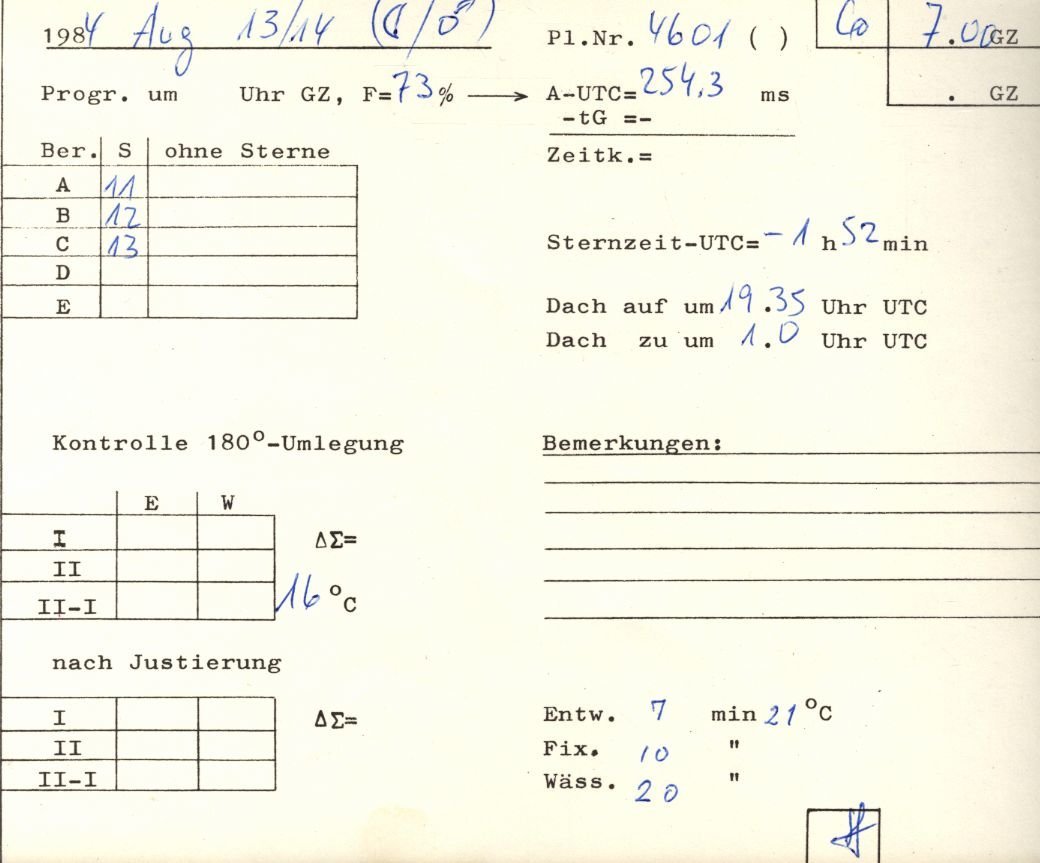 1984 Aug 13/14 (☾/♂) Pl.Nr. 4601 ( ) 7.00 GZ
Progr. um Uhr GZ, F=73% → A-UTC=254,3 ms . GZ
-tG =-
Ber. S ohne Sterne Zeitk.=
A 11
B 12
C 13 Sternzeit-UTC=-1 h 52 min
D
E Dach auf um 19.35 Uhr UTC
Dach zu um 1.0 Uhr UTC
Kontrolle 180°-Umlegung Bemerkungen:
E W
I ΔΣ=
II
II-I 16 °C
nach Justierung
I ΔΣ= Entw. 7 min 21 °C
II Fix. 10 "
II-I Wäss. 20 "